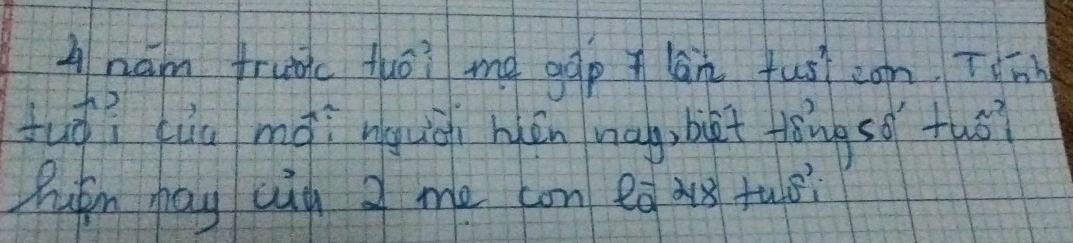 4 năm trước tuổi mẹ gấp 7 lần tuổi con. Tính
tuổi của mỗi người hiện nay, biết tổng số tuổi
hiện nay của 2 mẹ con là 48 tuổi